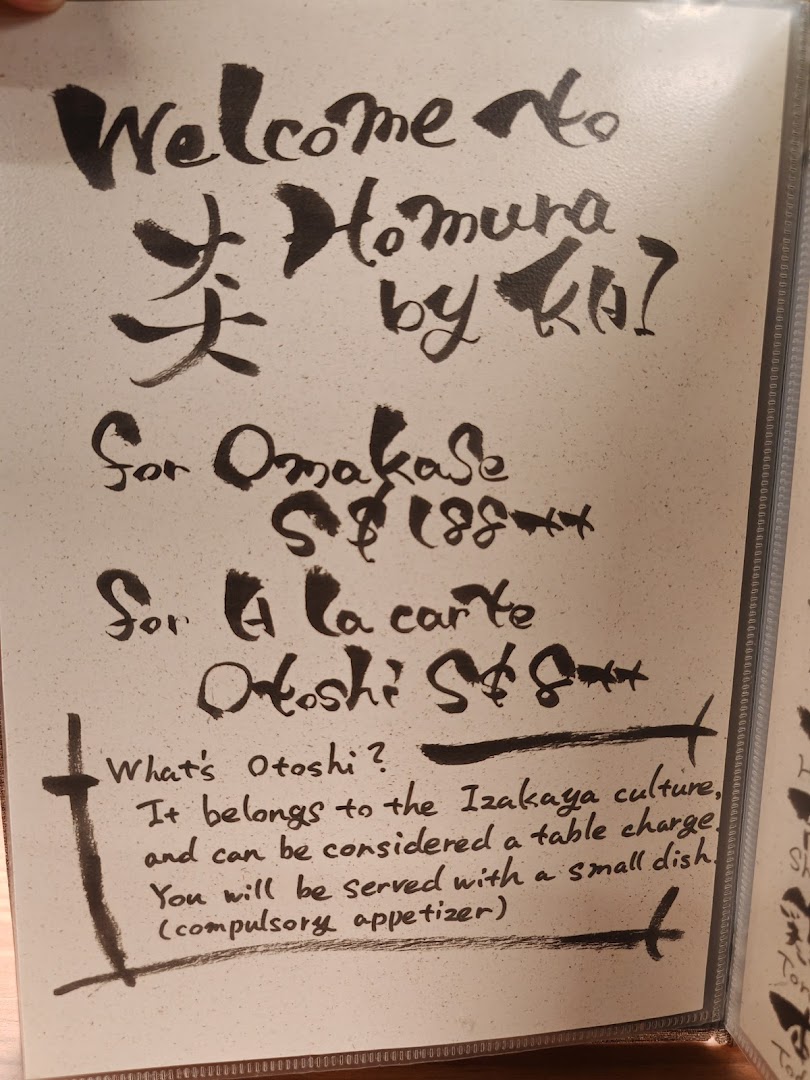 Welcome to
炎 Homura
by KAI
for Omakase
S$ 188++
for A la carte
Otoshi S$ 8++
What's Otoshi?
It belongs to the Izakaya culture,
and can be considered a table charge.
You will be served with a small dish.
(compulsory appetizer)